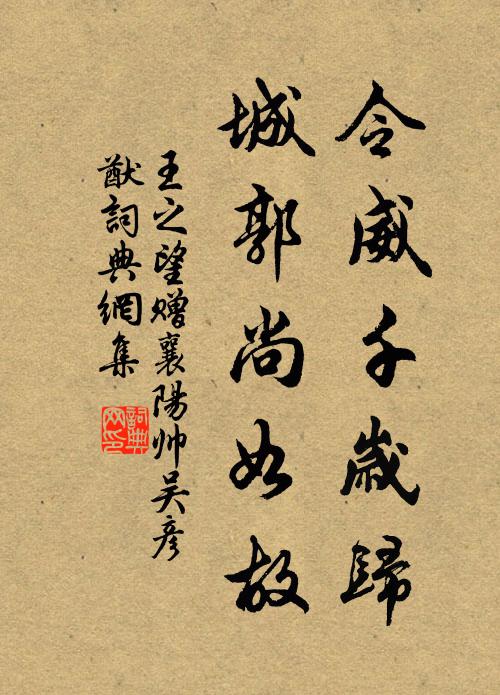 令威千歲歸
城郭尚如故
王之望贈襄陽帅吴彥
猷詞典網集
詞典網印